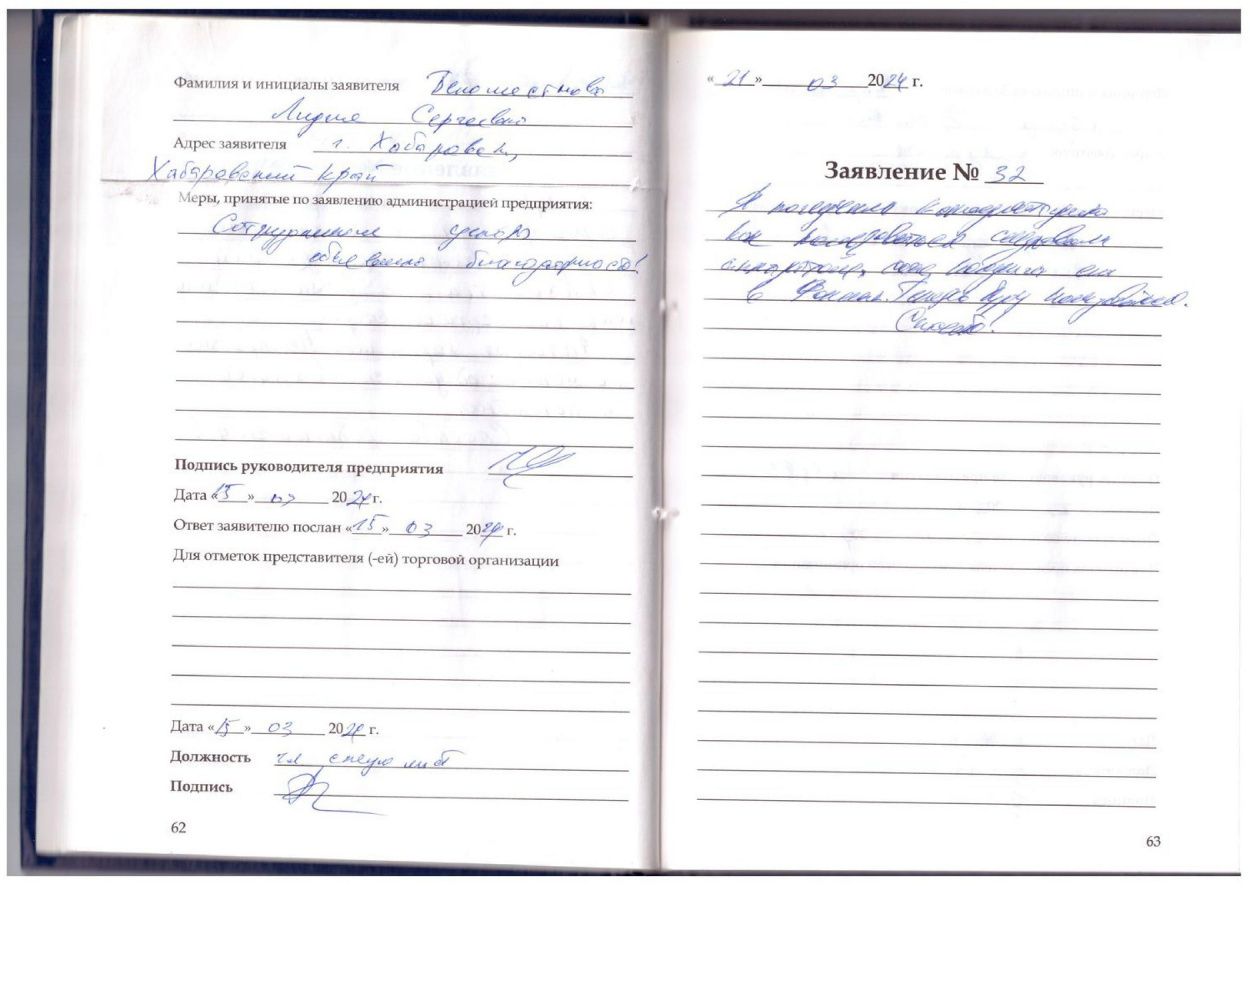 Фамилия и инициалы заявителя Беломестнова
Лидия Сергеевна
Адрес заявителя г. Хабаровск,
Хабаровский край
Меры, принятые по заявлению администрацией предприятия:
Сотрудникам
объявлена благодарность!
Подпись руководителя предприятия
Дата «15» 03 2024 г.
Ответ заявителю послан «15» 03 2024 г.
Для отметок представителя (-ей) торговой организации
Дата «15» 03 2024 г.
Должность гл специалист
Подпись
62
«21» 03 2024 г.
Заявление № 32
Я получила
как пользоваться
в Теперь буду пользоваться.
Спасибо!
63